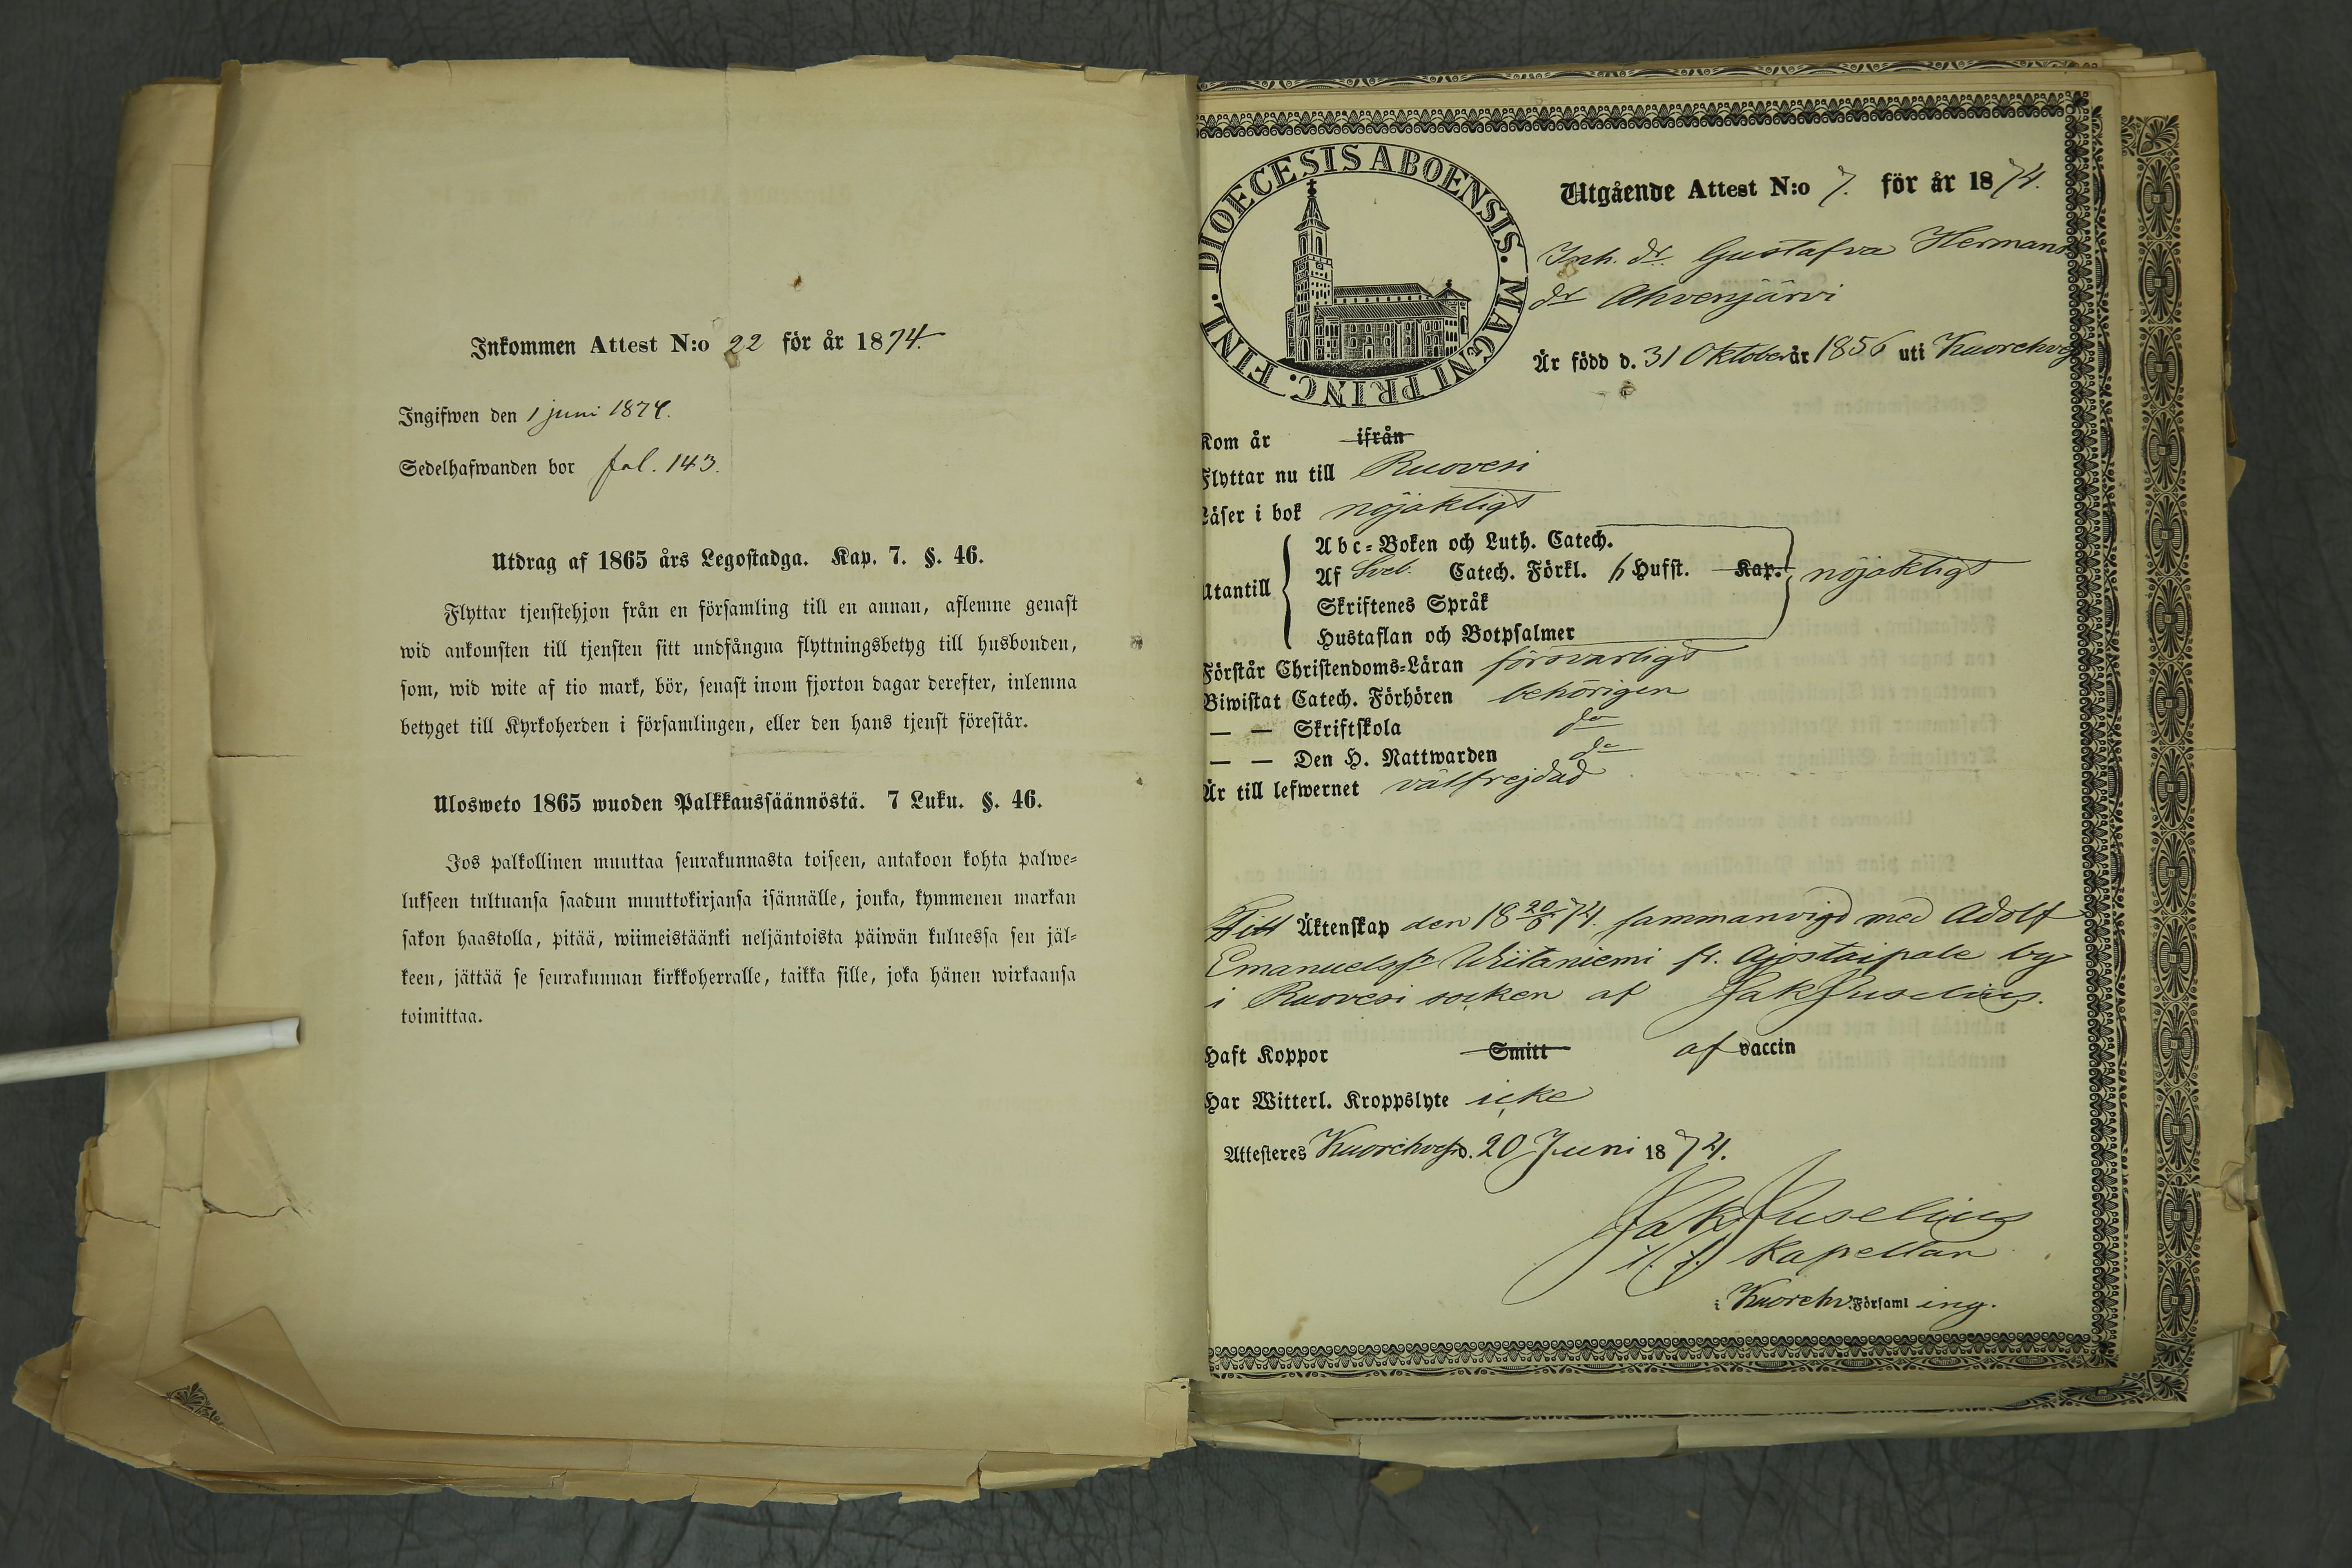 Inkommen Attest N:o 22 för år 1874
Ingifwen den 1 juni 1874.
Sedelhafwanden bor fol. 143.
Utdrag af 1865 års Legostadga. Kap. 7. §. 46.
Flyttar tjenstehjon från en församling till en annan, aflemne genast
wid ankomsten till tjensten sitt undfångna flyttningsbetyg till husbonden,
som, wid wite af tio mark, bör, senast inom fjorton dagar derefter, inlemna
betyget till Kyrkoherden i församlingen, eller den hans tjenst förestår.
Ulosweto 1865 wuoden Palkkaussäännöstä. 7 Luku. §. 46.
Jos palkollinen muuttaa seurakunnasta toiseen, antakoon kohta palwe-
lukseen tultuansa saadun muuttokirjansa isännälle, jonka, kymmenen markan
sakon haastolla, pitää, wiimeistäänki neljäntoista päiwän kuluessa sen jäl-
keen, jättää se seurakunnan kirkkoherralle, taikka sille, joka hänen wirkaansa
toimittaa.
DIOECESIS ABOENSIS. MAGNI PRINC. FINL.
Utgående Attest N:o 7. för år 1874.
Inh. dr. Gustafva Hermans
dr Ahvenjärvi
Är född d. 31 Oktober år 1856 uti Kuorehvesi
Kom år ifrån
Flyttar nu till Ruovesi
Läser i bok nöjaktligt
Utantill
Abc-Boken och Luth. Catech.
Af Sveb. Catech. Förkl. Hufst. Kap. nöjaktligt
Skriftenes Språk
Hustaflan och Botpsalmer
Förstår Christendoms-Läran försvarligt
Biwistat Catech. Förhören behörigen
— — Skriftskola do
— — Den H. Nattwarden do
Är till lefwernet välfrejdad
Till Äktenskap den 18 20/6 74. sammanvigd med Adolf
Emanuelss. Wiitaniemi fr. Ajostaipale by
i Ruovesi socken af Jak Juselius.
Haft Koppor Smitt af vaccin
Har Witterl. Kroppslyte icke
Attesteres Kuorehvesi d. 20 Juni 1874.
Jak Juselius
i. f. Kapellan
i Kuorehv. Församling.